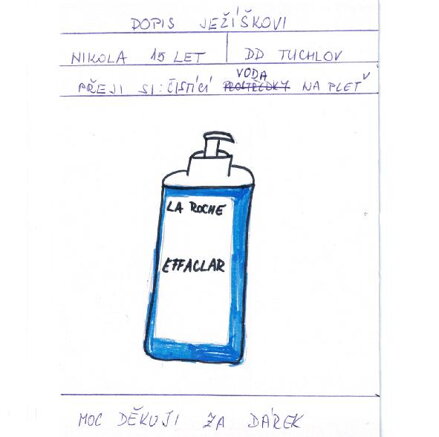 DOPIS JEŽÍŠKOVI
NIKOLA 15 LET DD TUCHLOV
PŘEJI SI: ČISTÍCÍ VODA NA PLEŤ
LA ROCHE
EFFACLAR
MOC DĚKUJI ZA DÁREK